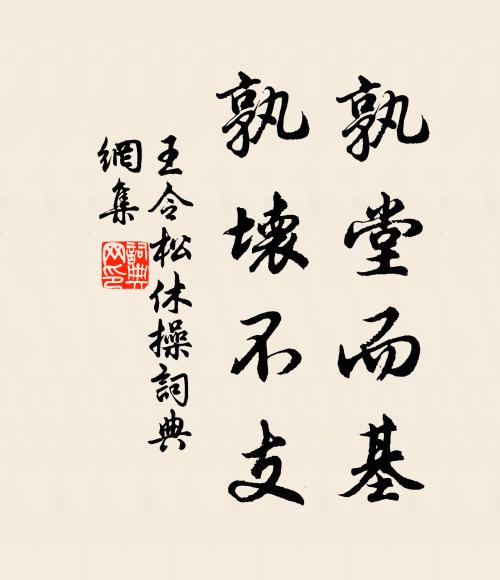 孰堂而基
孰壞不支
王令松休操詞典
網集
詞典
网印